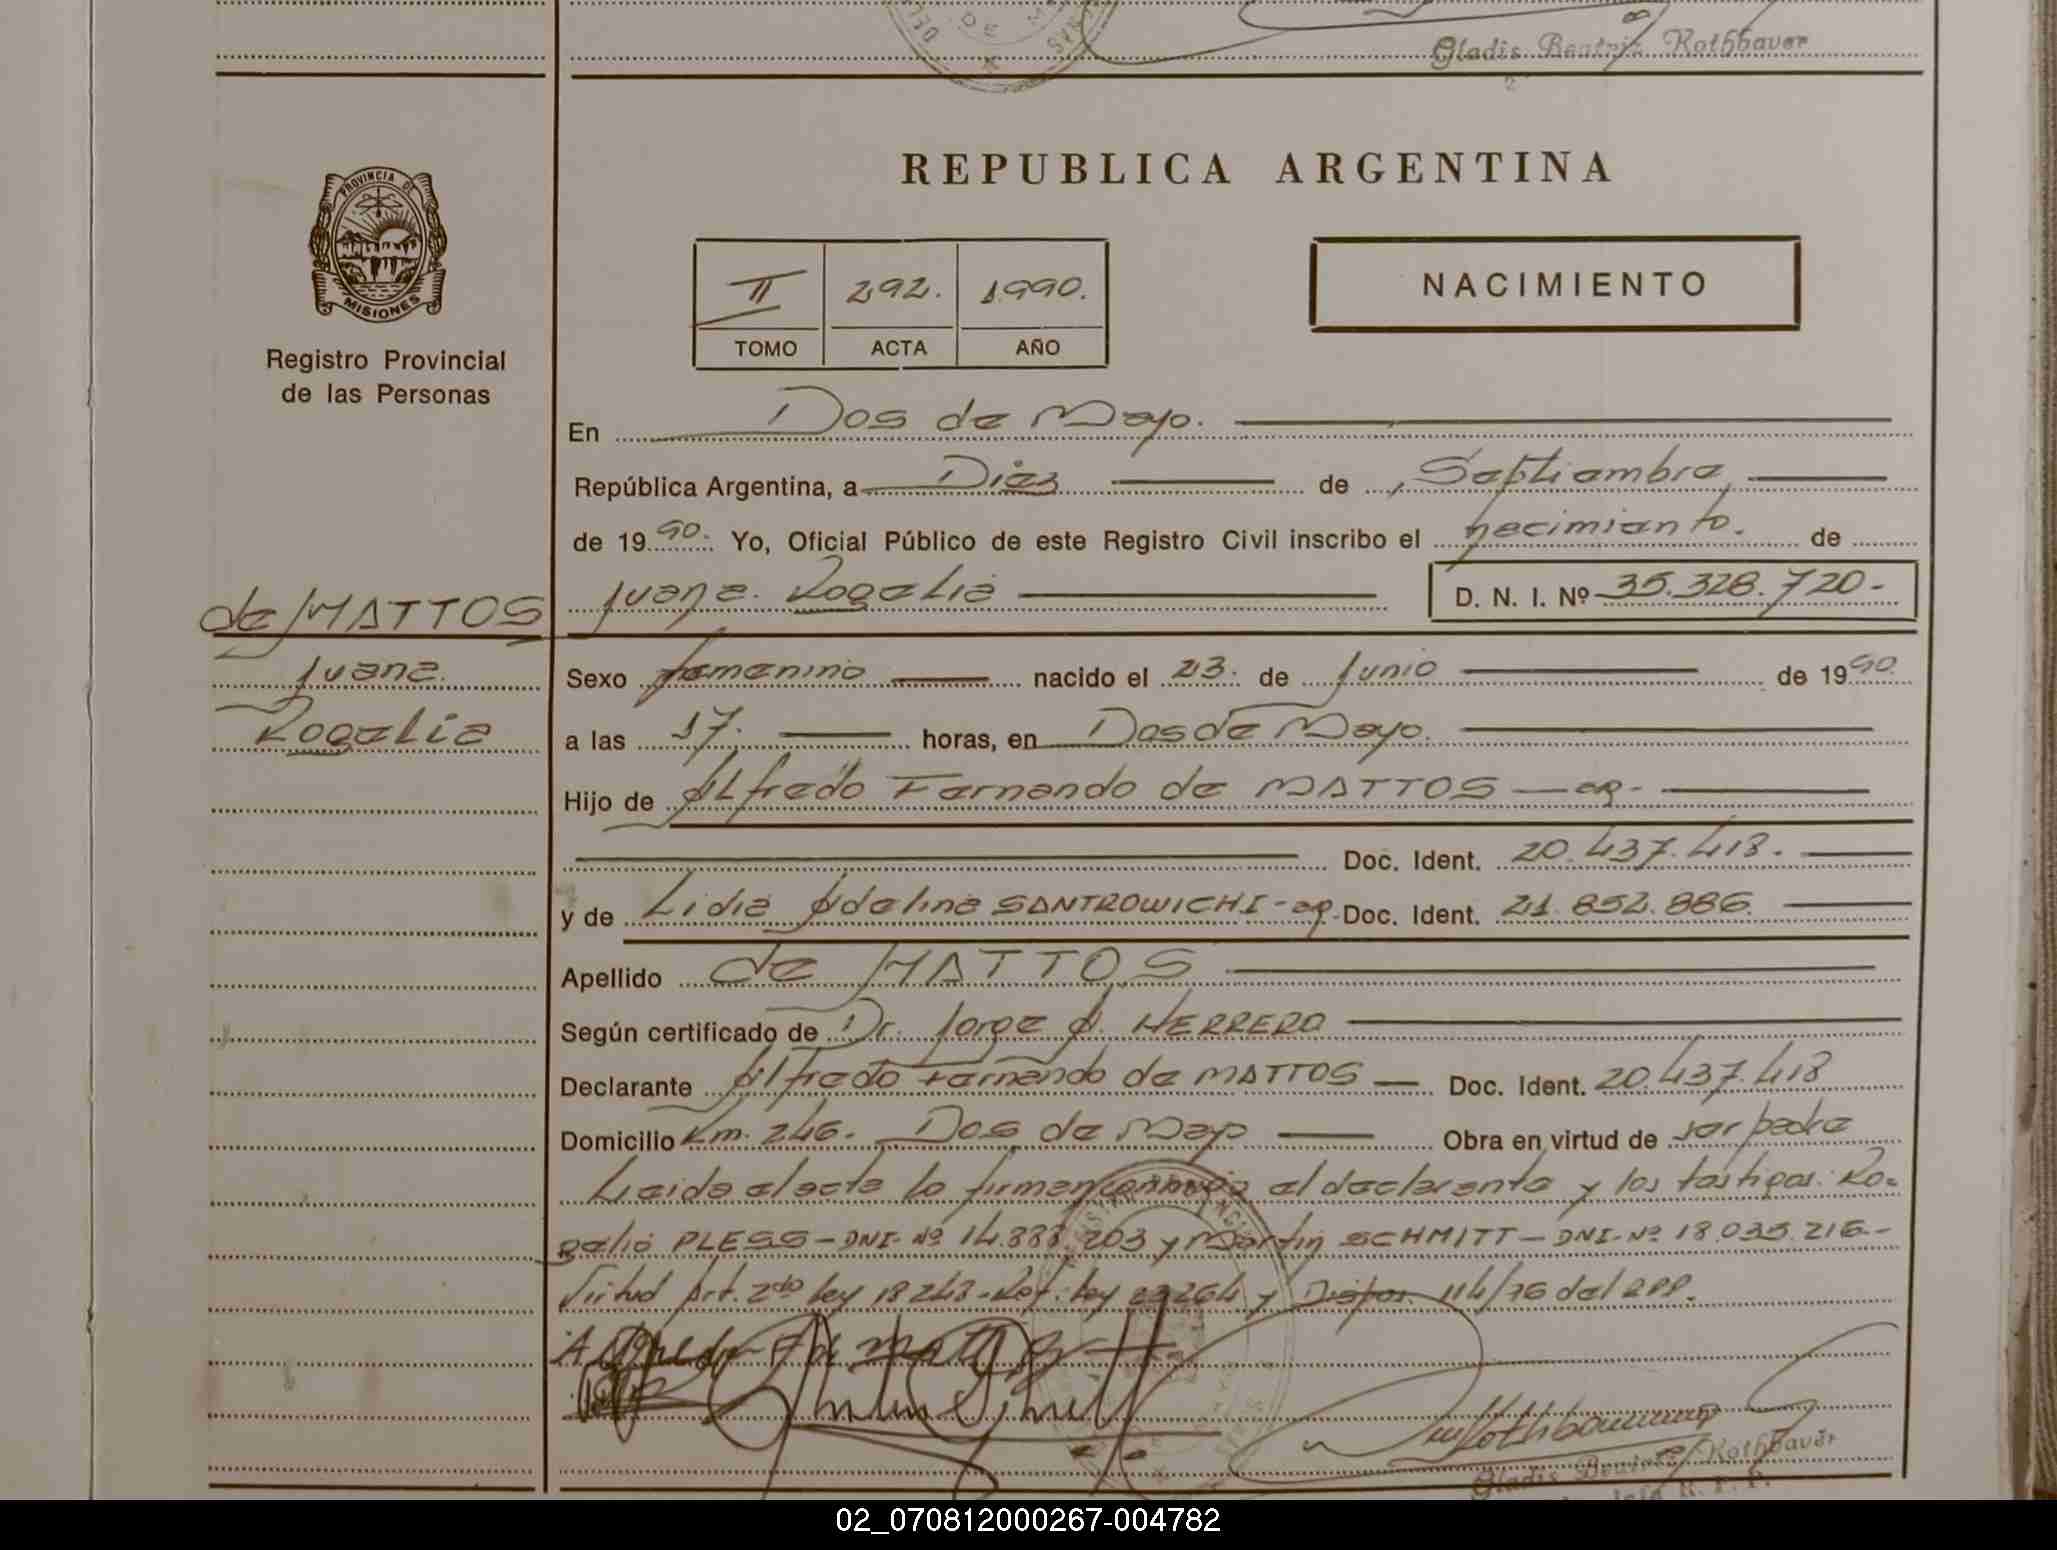 Gladis Beatriz Rothbaver
PROVINCIA DE
MISIONES
Registro Provincial
de las Personas
REPUBLICA ARGENTINA
II 292. 1990.
TOMO ACTA AÑO
NACIMIENTO
En Dos de Mayo.
República Argentina, a Diez de Septiembre
de 1990. Yo, Oficial Público de este Registro Civil inscribo el nacimiento. de
Juana Rogelia D. N. I. Nº 35.328.720-
de MATTOS
Juana
Rogelia
Sexo femenino nacido el 23. de Junio de 1990
a las 17. horas, en Dos de Mayo.
Hijo de Alfredo Fernando de MATTOS - ar -
Doc. Ident. 20.437.418.
y de Lidia Adelina SANTROWICHI - ar - Doc. Ident. 21.852.886
Apellido de MATTOS
Según certificado de Dr. Jorge A. HERRERO
Declarante Alfredo Fernando de MATTOS - Doc. Ident. 20.437.418
Domicilio Km. 246. Dos de Mayo Obra en virtud de ser padre
Leida el acta la firman conmigo el declarante y los testigos: Ro-
gelio PLESS - DNI-Nº 14.888.203 y Martin SCHMITT - DNI-Nº 18.035.216-
Virtud Art. 2do ley 18248 - Ref. ley 23264 y Dispos. 114/76 del RPP.
Gladis Beatriz Rothbaver
R. P. P.
02_070812000267-004782